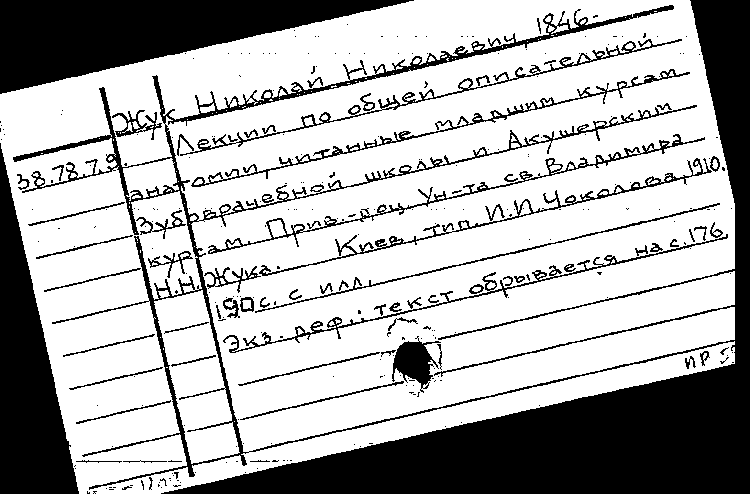 Жук, Николай Николаевич, 1846-
38.78.7.9.
Лекции по общей описательной
анатомии, читанные младшим курсам
Зубоврачебной школы и Акушерским
курсам. Прив.-доц. Ун-та св. Владимира
Н.Н. Жука. Киев, тип. И.И. Чоколова, 1910.
190с. с илл.
Экз. деф.: текст обрывается на с. 176.
ПР